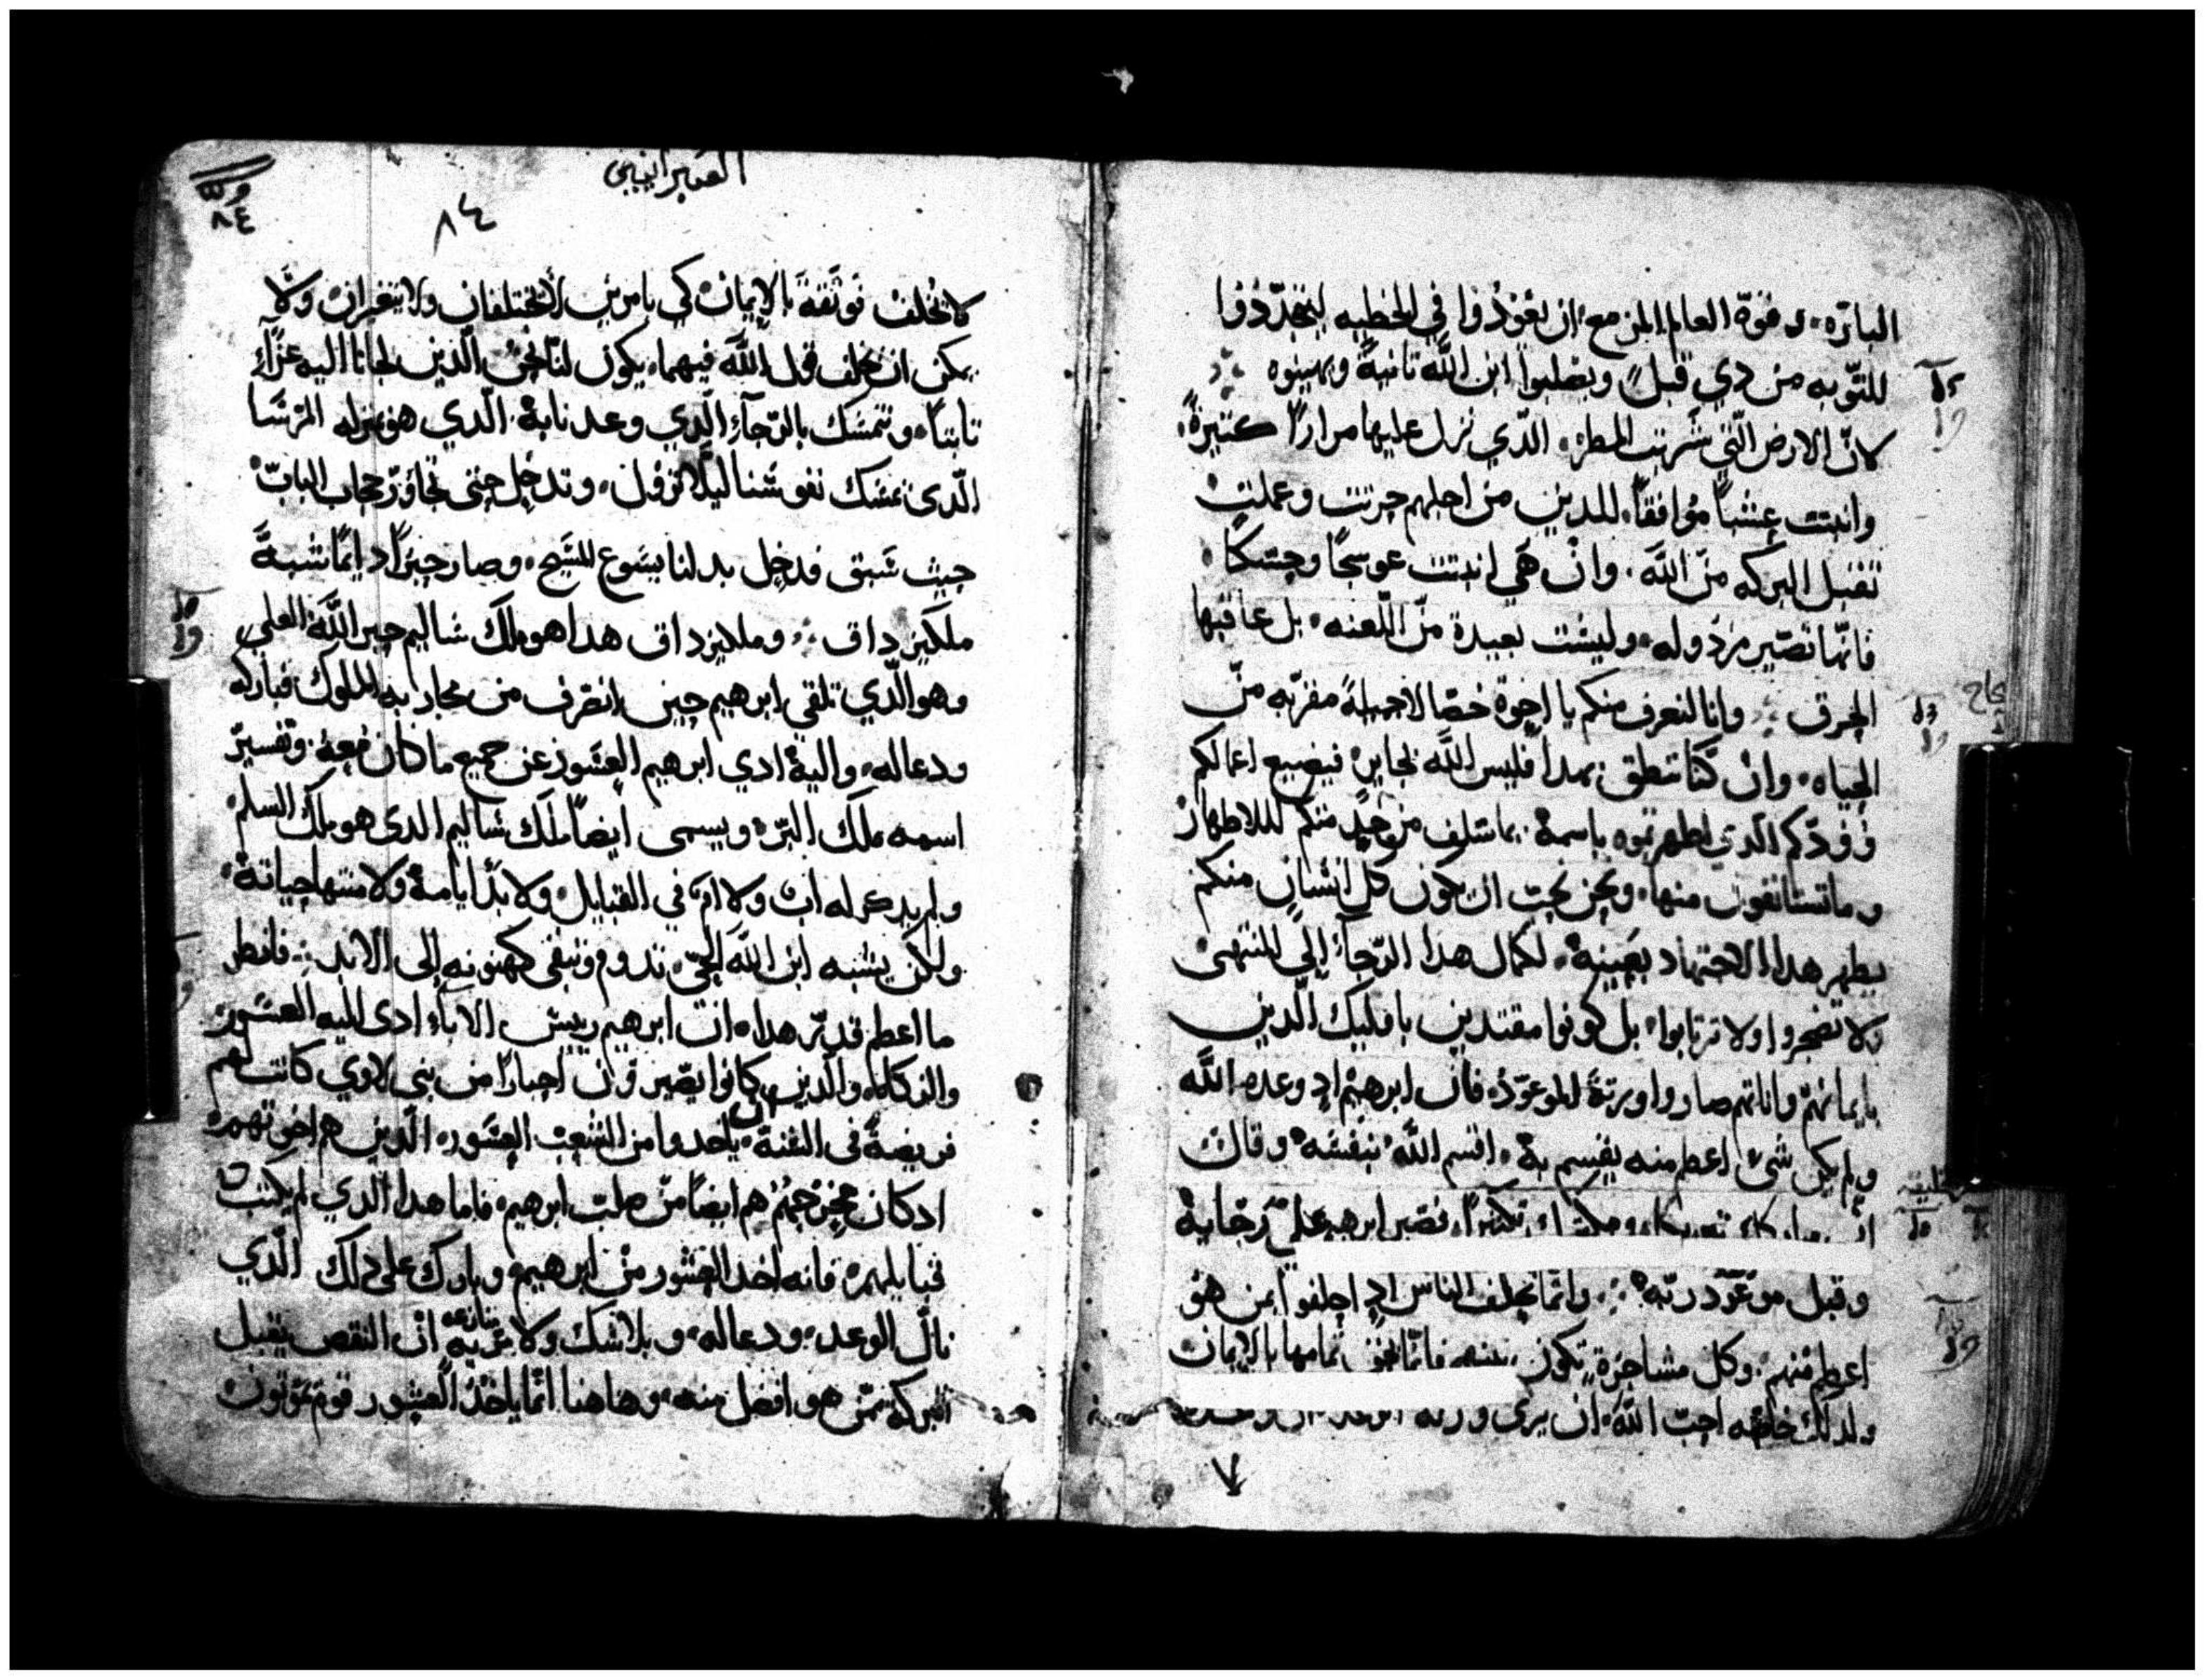 البارّه، وقوّة العالم المزمع، ان يعودوا في الخطيه ليتجدّدوا
للتّوبه من دي قبل، ويصلبوا ابن اللّه تانيةً ويهينوه
لانّ الارض الّتي شربت المطر، الدّي نزل عليها مرارًا كتيرةً،
وانبتت عشبًا موافقًا، للدين من اجلهم حرتت وعملت
تقبل البركه من اللّه، وان هي انبتت عوسجًا وحسكًا
فانّها تصّير مردوله، وليست بعيدة منّ اللّعنه، بل عاقبتها
الحرق وانا لنعرف منكم يا اخوة خصالا جميلةً مقربّه منّ
الحياه، وان كنّا ننطق بهدا فليس اللّه بجاير، فيضيع اعمالكم
وودّكم الّدي اظهرتموه باسمه، بما سلف من منكم للاطهار
وما تستانفون منها، ونحن نحب ان يكون كل انسان منكم
يظهر هدا الاجتهاد بعينه، لكمال هدا الرّجاء الي المنتهى
ولا تضجروا ولا ترتابوا، بل كونوا مقتدين باوليك الّدين
بايمانهم واناتهم صاروا ورتة الموعود، فان ابرهيم اد وعده اللّه
ولم يكن شيء اعظم منه يقسم به، اقسم اللّه بنفسه، وقال
فصّبر ابرهيم على رجايه
وقبل موعود ربّه وانّما يحلف الناس اد احلفوا بمن هو
اعظم منهم، وكل مشاجرة تكون بينهم فانّما تمامها بالايمان
ولدلك خاصّه احبّ اللّه، ان يري ورتة
العبرانيين
٨٤
٨٤
لا تخلف توثقة بالايمان، كي بامرين لا يختلفان ولا يتغيران، ولا
يمكن ان يخلف قول اللّه فيهما، يكون لنا نحن الّدين لجانا اليه عزاء
تابتًا، ونتمسك بالرّجاء الّدي وعدنا به، الّدي هو بمنزلة المرسا
الّدى تمسك نفوسنا ليلا تزول، وتدخل حتى تجاوز حجاب الباب
حيث سبق فدخل بدلنا يسوع المسيح، وصار حبرًا دايمًا شبه
ملكيزداق وملكيزداق هدا هو ملك شاليم حبر اللّه العلي
وهو الّدي تلقى ابرهيم حين انصرف من محاربة الملوك، فباركه
ودعا له، واليه ادي ابرهيم العشور عن جميع ما كان معه، وتفسير
اسمه ملك البرّ، ويسمى ايضًا ملك شاليم الدى هو ملك السلم
ولم يدكر له اب ولا ام في القبايل، ولا بدّ ايامه ولا منتها حياته،
ولكن يشبه ابن اللّه الحيّ، تدوم وتبقى كهنوته الى الابد فانظر
ما اعظم قدر هدا، ان ابرهيم رييس الاباء ادى اليه العشور
والزكاه، والّدين كانوا يصيرون احبارًا من بني لاوي كانت لهم
فريضةً في السّنة، ان ياخدوا من الشعب العشور، الّدين هم اخوتهم،
ادكان هم ايضًا من صلب ابرهيم، فاما هدا الدي لم يكتب
قبايلهم، فانه اخد العشور من ابرهيم، وبارك على دلك الّدي
نال الوعد، ودعا له، وبلا شك ولا مريه انّ النقص يقبل
البركة ممّن هو افضل منه، وهاهنا انّما ياخد العشور قوم يموتون